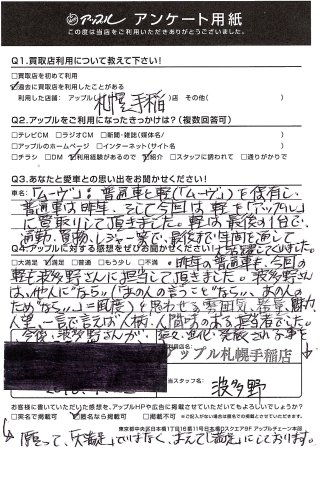 アップル アンケート用紙
この度は当店をご利用いただきありがとうございました。
Q1.買取店利用について教えて下さい!
□買取店を初めて利用
☑過去に買取店を利用したことがある
利用した店舗: アップル( 札幌手稲 )店 その他( )
Q2.アップルをご利用になったきっかけは?(複数回答可)
□テレビCM □ラジオCM □新聞・雑誌(媒体名/ )
□アップルのホームページ □インターネット(サイト名 )
□チラシ □DM ☑利用経験があるので ☑紹介 □スタッフに誘われて □通りがかりで
Q3.あなたと愛車との思い出をお聞かせください!
車名:「ムーヴ」: 普通車と軽(「ムーヴ」)を保有し、
普通車は昨年、そして今回は軽を「アップル」
に買取りして頂きました。軽は最後の1台で、
通勤、買物、レジャー等で、最後まで年間を通して
Q4.アップルに対する感想をぜひお聞かせください!
大活躍してくれました。
□大満足 ☑満足 □普通 □もう少し □不満
昨年の普通車も、今回の
軽も波多野さんに担当して頂きました。波多野さん
は、他人に"なら"、「あの人の言うこと"なら"、あの人の
ため"なら"、」=風度)を思わせる雰囲気、器量、魅力、
人望、一言で言えば人柄、人間味のある担当者でした。
今後、波多野さんが、
進化、発展される事を
アップル札幌手稲店
担当スタッフ名: 波多野
お客様に書いていただいた感想を、アップルHPや広告に掲載させていただいてもよろしいでしょうか?
□実名で掲載可 ☑匿名なら掲載可 □掲載不可
東京都中央区日本橋1丁目16番11号日本橋Dスクエア9F アップルチェーン本部
願って、「大満足」ではなく、あえて「満足」にしております。